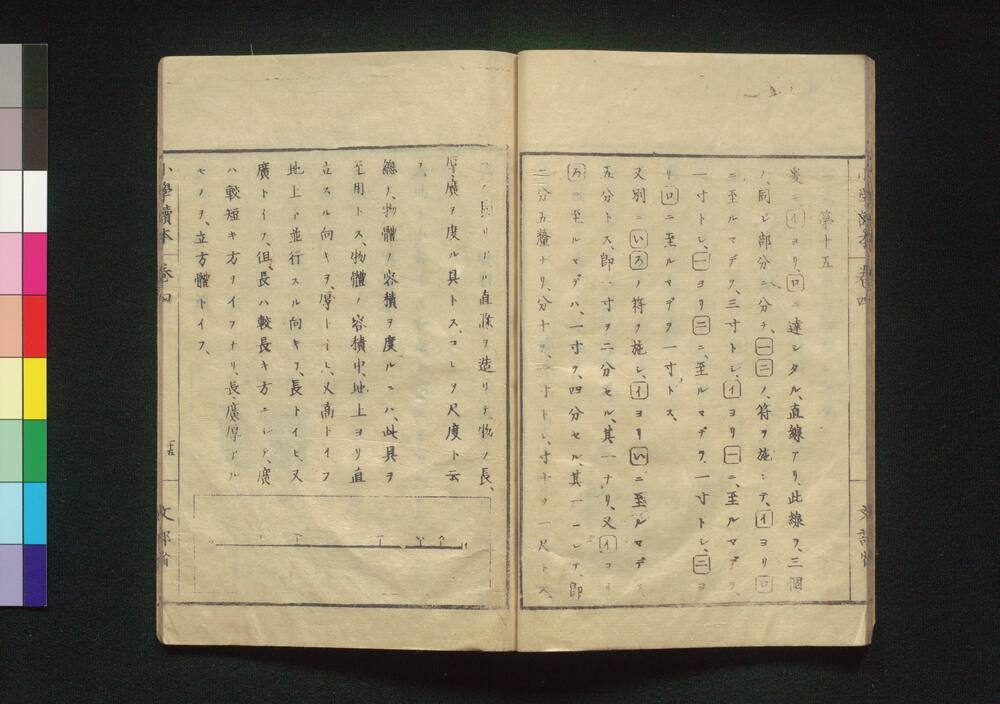 第十五
イヨリ、ロニ達シタル、直線アリ、此線ヲ、三個
ノ、同ジ部分ニ分チ、一二ノ、符ヲ施シテ、イヨリロ
ニ至ルマデヲ、三寸トシ、イヨリ一ニ、至ルマデヲ、
一寸トシ、一ヨリ二ニ、至ルマデヲ、一寸トシ、二ヨ
リロニ至ルマデヲ一寸トス、
又別ニいろノ符ヲ施シ、イヨリいニ至ルマデヲ、
五分トス、即一寸ヲ二分セル、其一ナリ、又イヨリ
ろニ至ルマデハ、一寸ヲ、四分セル、其一ニシテ、即
二分五釐ナリ、分十ヲ、一寸トシ、寸十ヲ一尺トス、
直條ヲ造リテ、物ノ長、
厚、廣ヲ度ル具トス、コレヲ尺度ト云
フ、
總テ、物體ノ容積ヲ度ルニハ、此具ヲ
至用トス、物體ノ容積中、地上ヨリ直
立スル向キヲ、厚トイヒ、又高トイフ
地上ト並行スル向キヲ、長トイヒ、又
廣トイフ、但、長ハ較長キ方ニシテ、廣
ハ較短キ方ヲイフナリ、長、廣、厚アル
モノヲ、立方體トイフ、
小學讀本 卷四 二十五 文部省